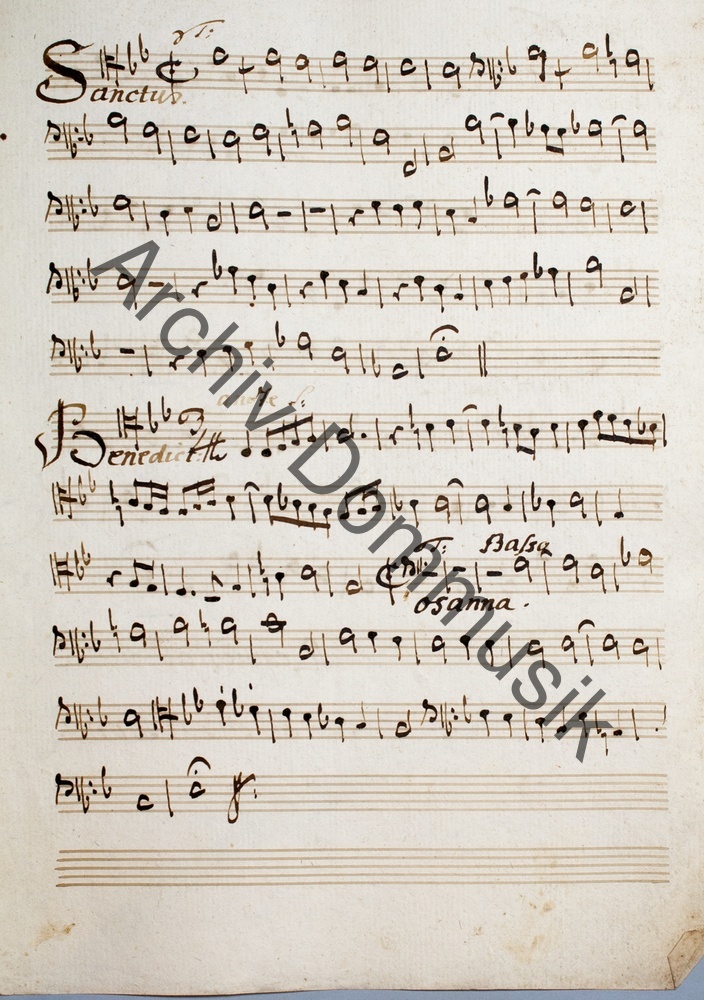 T:
Sanctus.
Benedict.
T: Bassa
osanna.
Archiv Dommusik